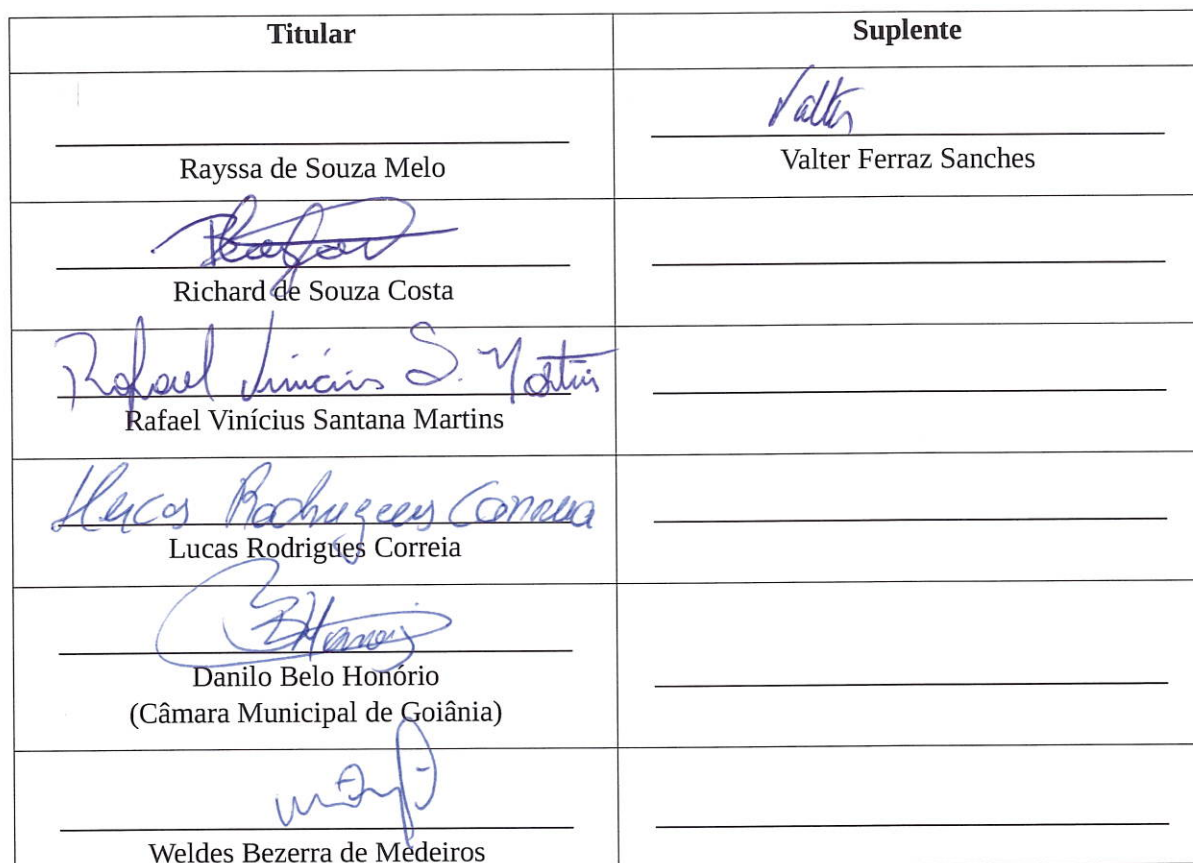 Titular Suplente
Valter
Rayssa de Souza Melo Valter Ferraz Sanches
Richard de Souza Costa
Rafael Vinícius S. Martins
Rafael Vinícius Santana Martins
Lucas Rodrigues Correia
Lucas Rodrigues Correia
Danilo Belo Honório
(Câmara Municipal de Goiânia)
Weldes Bezerra de Medeiros